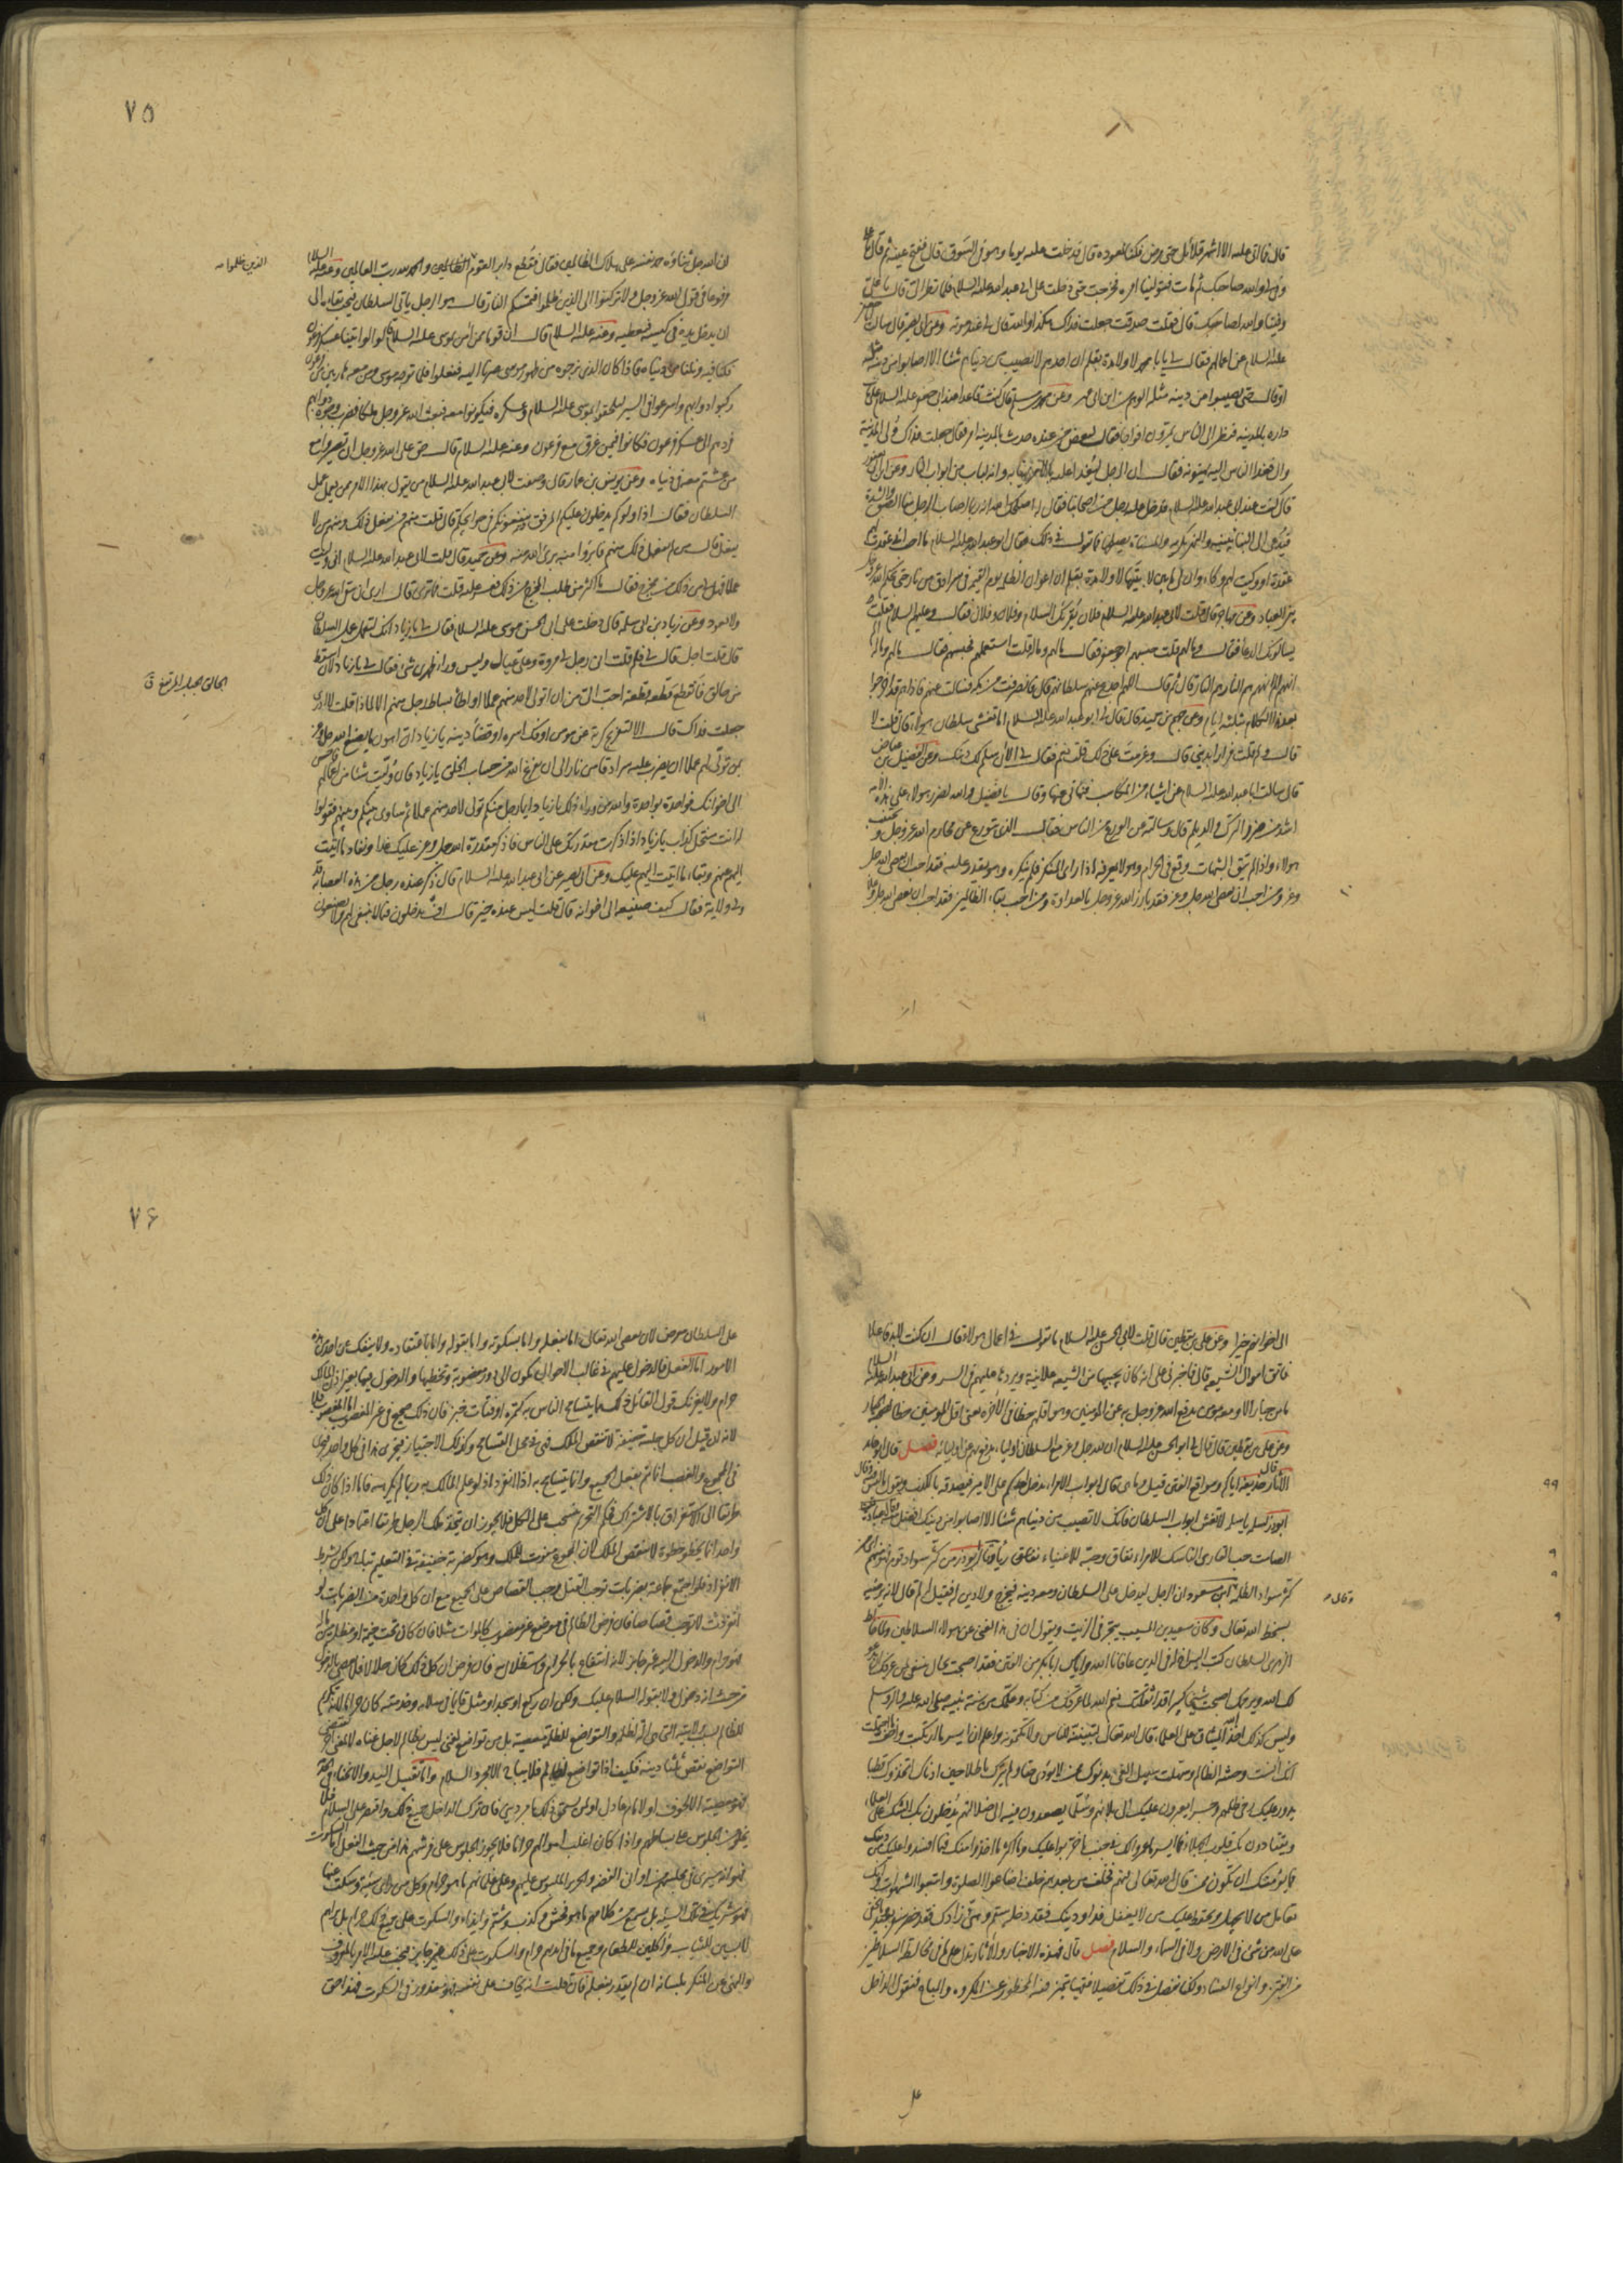 قال فما اتى عليه الا اشهر قلائل حتى مرض فكنا نعوده قال فدخلت عليه يوما وهو في السوق قال ففتح عينيه ثم قال يا علي
وفى لي والله صاحبك ثم مات فتولينا امره فخرجت حتى دخلت على ابي عبد الله عليه السلام فلما نظر الي قال يا علي
وفينا والله لصاحبك قال فقلت صدقت جعلت فداك هكذا والله قال لي عند موته وعن ابي بصير قال سالت ابا جعفر
عليه السلام عن اعمالهم فقال لي يا ابا محمد لا ولا مدة بقلم ان احدهم لا يصيب من دنياهم شيئا الا اصابوا من دينه مثله
او قال حتى يصيبوا من دينه مثله الوهم من ابن ابي عمير وعن محمد بن مسلم قال كنت قاعدا عند ابي جعفر عليه السلام على باب
داره بالمدينة فنظر الى الناس يمرون افواجا فقال لبعض من عنده حدث بالمدينة امر فقال جعلت فداك ولي المدينة
وال فغدا الناس اليه يهنونه فقال ان الرجل ليغدا عليه بالامر يهنا به وانه لباب من ابواب النار وعن ابن ابي يعفور
قال كنت عند ابي عبد الله عليه السلام فدخل عليه رجل من اصحابنا فقال له اصلحك الله انه ربما اصاب الرجل منا الضيق والشدة
فيدعى الى البناء يبنيه والنهر يكريه والمسناة يصلحها فما تقول في ذلك فقال ابو عبد الله عليه السلام ما احب اني عقدت لهم
عقدة او وكيت لهم وكاء وان لي ما بين لابتيها لا ولا مدة بقلم ان اعوان الظلمة يوم القيمة في سرادق من نار حتى يحكم الله
بين العباد وعن جهم قال قلت لابي عبد الله عليه السلام فلان يقرئك السلام وفلان وفلان فقال وعليهم السلام قلت
يسالونك الدعا فقال وما لهم قلت حبسهم ابو جعفر فقال ما لهم وما له قلت استعملهم فحبسهم فقال ما لهم وما له
انهم الم انهم هم النار هم النار هم النار قال ثم قال اللهم اجدع عنهم سلطانهم قال فانصرفت من مكة فسالت عنهم فاذا هم قد اخرجوا
بعد هذا الكلام بثلثة ايام وعن جهم بن حميد قال قال لي ابو عبد الله عليه السلام اما تغشى سلطان هؤلاء قال قلت لا
قال ولم قلت فرارا بديني قال وعزمت على ذلك قلت نعم فقال لي الان سلم لك دينك وعن الفضيل بن عياض
قال سالت ابا عبد الله عليه السلام عن اشياء من المكاسب فنهاني عنها وقال يا فضيل والله لضرر هؤلاء على هذه الامة
اشد من ضرر الترك والديلم قال وسالته عن الورع من الناس فقال الذي يتورع عن محارم الله عز وجل ويجتنب
هؤلاء واذا لم يتق الشبهات وقع في الحرام وهو لا يعرفه اذا راى المنكر فلم ينكره وهو يقدر عليه فقد احب ان يعصى الله جل
وعز ومن احب ان يعصى الله جل وعز فقد بارز الله عز وجل بالعداوة ومن احب بقاء الظالمين فقد احب ان يعصى الله جل وعلا
٧٥
ان الله جل ثناؤه حمد نفسه على هلاك الظالمين فقال فقطع دابر القوم الظالمين والحمد لله رب العالمين وعنه عليه السلام
الذين ظلموا
مرفوعا في قول الله عز وجل ولا تركنوا الى الذين ظلموا فتمسكم النار قال هو الرجل ياتي السلطان فيحب بقاءه الى
ان يدخل يده في كيسه فيعطيه وعنه عليه السلام قال ان قوما ممن امن بموسى عليه السلام قالوا لو اتينا عسكر فرعون
فكنا فيه ونلنا من دنياه فاذا كان الذي نرجوه من ظهور موسى صرنا اليه ففعلوا فلما توجه موسى ومن معه هاربين من فرعون
ركبوا دوابهم واسرعوا في السير ليلحقوا بموسى عليه السلام وعسكره فيكونوا معه فبعث الله عز وجل ملكا فضرب وجوه دوابهم
فردهم الى عسكر فرعون فكانوا فيمن غرق مع فرعون وعنه عليه السلام قال حق على الله عز وجل ان تصيروا مع
من عشتم معه في دنياه وعن يونس بن عمار قال وصفت لابي عبد الله عليه السلام من يقول بهذا الامر ممن يعمل عمل
السلطان فقال اذا ولوكم يدخلون عليكم المرفق وينفعونكم في حوايجكم قال قلت منهم من يفعل ذلك ومنهم من لا
يفعل قال من لم يفعل ذلك منهم فابرؤا منه برئ الله منه وعن حميد قال قلت لابي عبد الله عليه السلام اني وليت
عملا فهل لي من ذلك مخرج فقال ما اكثر من طلب المخرج من ذلك فعسر عليه قلت فما ترى قال ارى ان تتقي الله عز وجل
ولا تعود وعن زياد بن ابي سلمة قال دخلت على ابي الحسن موسى عليه السلام فقال لي يا زياد انك لتعمل عمل السلطان
قال قلت اجل قال لي ولم قلت انا رجل لي مروة وعلي عيال وليس وراء ظهري شئ فقال لي يا زياد لان اسقط
الحالق الجبل المرتفع ق
من حالق فاتقطع قطعة قطعة احب الي من ان اتولى لاحد منهم عملا او اطأ بساط رجل منهم الا لماذا قلت لا ادري
جعلت فداك قال الا لتفريج كربة عن مومن او فك اسره او قضاء دينه يا زياد ان اهون ما يصنع الله جل وعز
بمن تولى لهم عملا ان يضرب عليه سرادقا من نار الى ان يفرغ الله من حساب الخلق يا زياد فان وليت شيئا من اعمالهم فاحسن
الى اخوانك فواحدة بواحدة والله من وراء ذلك يا زياد ايما رجل منكم تولى لاحد منهم عملا ثم ساوى بينكم وبينهم فقولوا
له انت منتحل كذاب يا زياد اذا ذكرت مقدرتك على الناس فاذكر مقدرة الله جل وعز عليك غدا ونفاد ما اتيت
اليهم عنهم وبقاء ما اتيت اليهم عليك وعن ابي بصير عن ابي عبد الله عليه السلام قال ذكر عنده رجل من هذه العصابة قد
ولي ولاية فقال كيف صنيعه الى اخوانه قال قلت ليس عنده خير قال اف يدخلون فيما لا ينبغي لهم ولا يصنعون
الى اخوانهم خيرا وعن علي بن يقطين قال قلت لابي الحسن عليه السلام ما تقول في اعمال هؤلاء قال ان كنت لا بد فاعلا
فاتق اموال الشيعة قال فاخبرني علي انه كان يجبيها من الشيعة علانية ويردها عليهم في السر وعن ابي عبد الله عليه السلام
ما من جبار الا ومعه مومن يدفع الله عز وجل به عن المومنين وهو اقلهم حظا في الآخرة يعني اقل المومنين حظا لصحبة الجبار
وعن علي بن يقطين قال قال لي ابو الحسن عليه السلام ان لله جل وعز مع السلطان اولياء يدفع بهم عن اوليائه فصل قال ابو حامد
الآثار قال حذيفة اياكم ومواقع الفتن قيل وما هي قال ابواب الامراء يدخل احدكم على الامير فيصدقه بالكذب ويقول ما ليس فيه وقال
ابو ذر لسلمة يا سلمة لا تغش ابواب السلطان فانك لا تصيب من دنياهم شيئا الا اصابوا من دينك افضل منه وقال عبادة بن
الصامت حب القاري الناسك للامراء نفاق وحبه للاغنياء رياء وقال ابو ذر من كثر سواد قوم فهو منهم اي من
كثر سواد الظلمة ابن مسعود ان الرجل ليدخل على السلطان ومعه دينه فيخرج ولا دين له قيل له لم قال لانه يرضيه
وقال
بسخط الله تعالى وكان سعيد بن المسيب يتجر في الزيت ويقول ان في هذا لغنى عن هؤلاء السلاطين ولما خالط
الزهري السلطان كتب اليه اخ له في الدين عافانا الله واياك ابا بكر من الفتن فقد اصبحت بحال ينبغي لمن عرفك ان يدعو
لك الله ويرحمك اصبحت شيخا كبيرا قد اثقلتك نعم الله لما عرفك من كتابه وعلمك من سنة نبيه صلى الله عليه واله وسلم
وليس كذلك اخذ الله الميثاق على العلماء قال الله تعالى لتبيننه للناس ولا تكتمونه واعلم ان ايسر ما ارتكبت واخف ما احتملت
انك انست وحشة الظالم وسهلت سبيل الغي بدنوك ممن لا يؤدي حقا ولم يترك باطلا حين ادناك اتخذوك قطبا
يدور عليك رحى ظلمهم وجسرا يعبرون عليك الى بلائهم وسلما يصعدون فيه الى ضلالتهم يدخلون بك الشك على العلماء
ويقتادون بك قلوب الجهلاء فما ايسر ما عمروا لك في جنب ما خربوا عليك وما اكثر ما اخذوا منك فيما افسدوا عليك من دينك
فما يؤمنك ان تكون ممن قال الله تعالى فيهم فخلف من بعدهم خلف اضاعوا الصلوة واتبعوا الشهوات وانك
تعامل من لا يجهل ويحفظ عليك من لا يغفل فداو دينك فقد دخله سقم وهيئ زادك فقد حضر سفر بعيد وما يخفى
على الله من شئ في الارض ولا في السماء والسلام فصل قال فهذه الاخبار والآثار تدل على ما في مخالطة السلاطين
من الفتن وانواع الفساد ولكن نفصل في ذلك تفصيلا فقهيا يتميز فيه المحظور عن المكروه والمباح فنقول الداخل
٧۶
على السلطان معرض لان يعصى الله تعالى اما بفعله واما بسكوته واما بقوله واما باعتقاده ولا ينفك عن احدى هذه
الامور اما الفعل فالدخول عليهم في غالب الاحوال يكون الى دور مغصوبة وتخطيها والدخول فيها بغير اذن المالك
حرام ولا يغرنك قول القائل ذلك مما يتسامح الناس به كتمرة او فتات خبز فان ذلك صحيح في غير المغصوب اما المغصوب فلا
لانه ان قيل ان كل جلسة خفيفة لا تنقص الملك فهي في محل التسامح وكذلك الاجتياز فيجري هذا في كل واحد فيجري
في المجموع والغصب انما تم بفعل الجميع وانما يتسامح به اذا انفرد اذ لو علم المالك به ربما لم يكرهه فاما اذا كان ذلك
طريقا الى الاستغراق بالاشتراك فحكم التحريم ينسحب على الكل فلا يجوز ان تتخذ ملك الرجل طريقا اعتمادا على ان كل
واحد انما يخطو خطوة لا تنقص الملك لان المجموع مفوت للملك وهو كضربة خفيفة في التعليم تباح ولكن بشرط
الانفراد فلو اجتمع جماعة بضربات توجب القتل وجب القصاص على الجميع مع ان كل واحدة من الضربات لو
انفردت لا توجب قصاصا فان فرض الظالم في موضع غير مغصوب كالموات مثلا فان كان تحت خيمة او مظلة من ماله
فهو حرام والدخول اليه غير جايز لانه انتفاع بالحرام واستظلال به فان فرض ان كل ذلك كان حلالا فلا يعصى بالدخول
من حيث انه دخول ولا بقوله السلام عليك ولكن ان ركع او سجد او مثل قائما في سلامه وخدمته كان حراما لانه تكرم
للظالم بسبب ولايته التي هي آلة ظلمه والتواضع للظلمة معصية بل من تواضع لغني ليس بظالم لاجل غناه لا لمعنى اخر
التواضع نقص ثلثا دينه فكيف اذا تواضع لظالم فلا يباح الا مجرد السلام واما تقبيل اليد والانحناء في الخدمة
فهو معصية الا لخوف او لامام عادل او لمن يستحق ذلك بامر ديني فان ترك الداخل جميع ذلك واقتصر على السلام فلا
يخلو من الجلوس على بساطهم واذا كان اغلب اموالهم حراما فلا يجوز الجلوس على فرشهم هذا من حيث الفعل اما السكوت
فهو انه سيرى في مجلسهم من اواني الفضة والحرير الملبوس عليهم وعلى غلمانهم ما هو حرام وكل من راى سيئة وسكت عنها
فهو شريك في تلك السيئة بل يسمع من كلامهم ما هو فحش وكذب وشتم وايذاء والسكوت على جميع ذلك حرام بل يراهم
لابسين للثياب وآكلين للطعام وجميع ما في ايديهم حرام والسكوت على ذلك غير جايز فيجب عليه الامر بالمعروف
والنهي عن المنكر بلسانه ان لم يقدر بفعله فان قلت انه يخاف على نفسه فهو معذور في السكوت فهذا حق